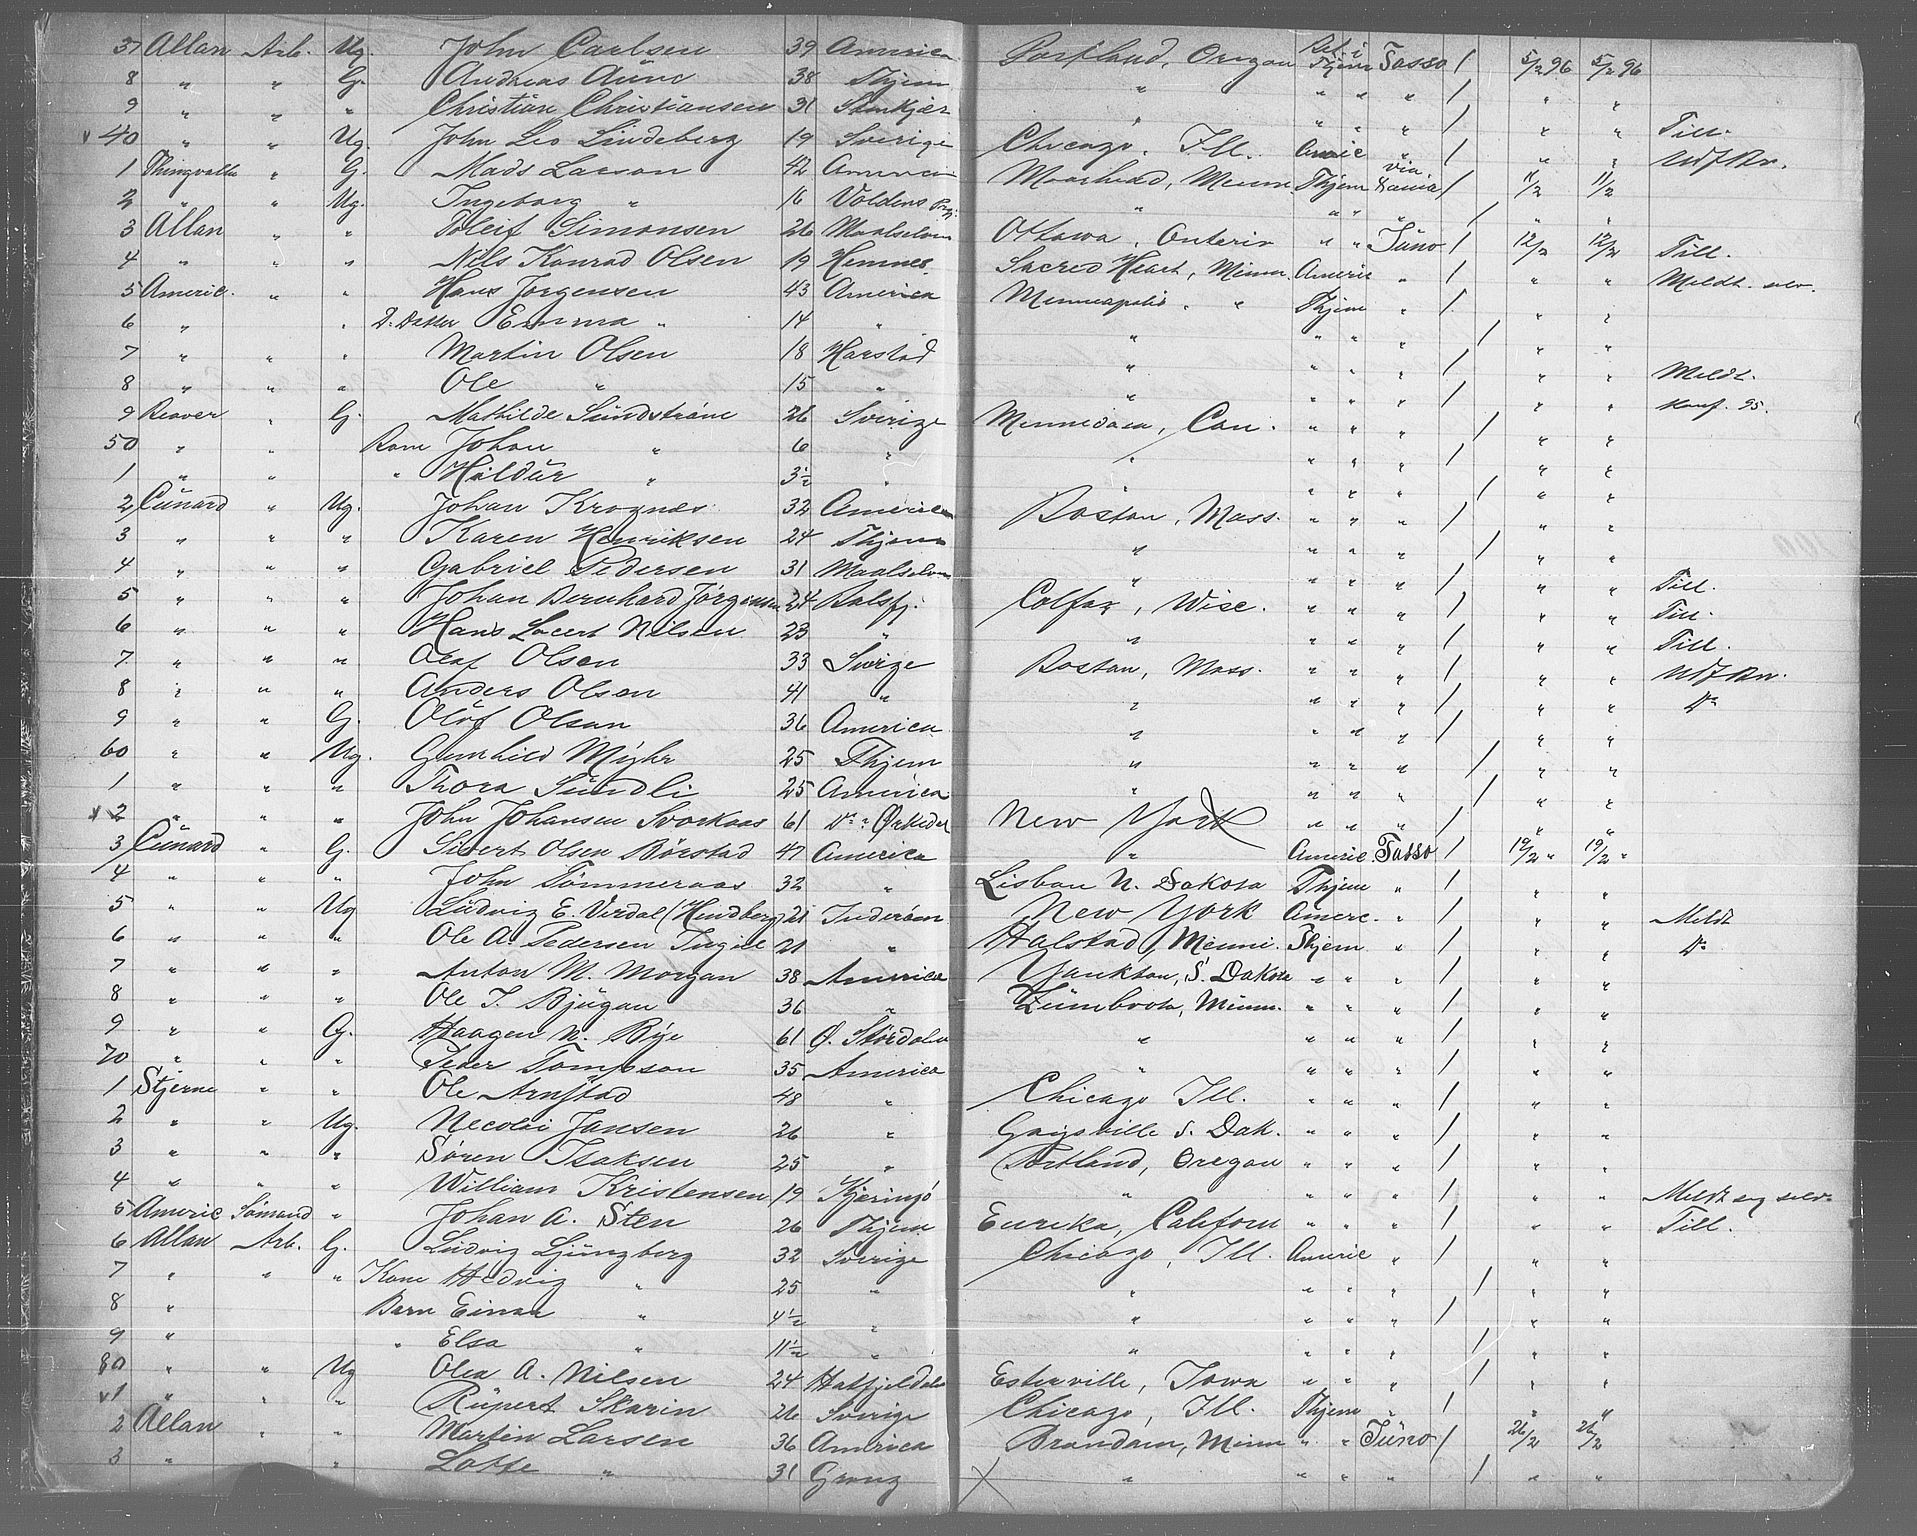 37 Allan Arb. Ug. John Carlsen 39 America Portland, Oregon Bet. i Thjem Tasso / 5/2 96 5/2 96
8 " " G. Andreas Aune 38 Thjem " " " " / " "
9 " " " Christian Christiansen 31 Stenkjær " " " " / " " Till.
v 40 " " Ug. John Leo Lindeberg 19 Sverige Chicago, Ill. Americ " / " " Udf Bn.
1 Thingvalla " G. Mads Larson 42 America Moorhead, Minn. Thjem via / 11/2 11/2
2 " " Ug. Ingeborg " 16 Voldens Prgj. " " " " / " "
3 Allan " " Tolleif Simonsen 26 Maalselven Ottawa, Onterio " " Juno / 12/2 12/2 Till.
4 " " " Nils Konrad Olsen 19 Hemnes Sacred Heart, Minn. Americ " / " " Meldt. selv.
5 Americ. " " Hans Jørgensen 43 America Minneapolis, " Thjem " / " "
6 " " D. Datter Emma " 14 " " " " " / " "
7 " " " Martin Olsen 18 Harstad " " " " / " " Meldt.
8 " " " Ole " 15 " " " " " / " " Konf. 95.
9 Beaver " G. Mathilde Sundstrøm 26 Sverige Minnedosa, Can. " " " / " "
50 " " Barn Johan " 6 " " " " " / " "
1 " " " Hildur " 3½ " " " " " / " "
2 Cunard " Ug. Johan Krognes 32 America Boston, Mass. " " " / " "
3 " " " Karen Henriksen 24 Thjem " " " " / " "
4 " " " Gabriel Pedersen 31 Maalselven " " " " / " " Till.
5 " " " Johan Bernhard Jørgensen 24 Balsfj. Colfax, Wisc. " " " / " " Till.
6 " " " Hans Lacert Nilsen 23 " " " " " / " " Till.
7 " " " Olaf Olsen 33 Sverige Boston, Mass. " " " / " " Udf Bn.
8 " " " Anders Olsen 41 " " " " " / " " Do
9 " " G. Olof Olsan 36 America " " " " / " "
60 " " Ug. Gunhild Myhr 25 Thjem " " " " / " "
1 " " " Thora Sundli 25 America " " " " / " "
v 2 " " " John Johansen Svorkaas 61 Do " Ørkedal New York " " " / " "
3 Cunard " G. Sivert Olsen Børstad 47 America " Americ. Tasso / 19/2 " 19/2 "
4 " " " John Tømmeraas 32 " Lisbon N. Dakota Thjem " / " "
5 " " Ug. Ludvig E. Verdal (Hindberg) 21 Inderøen New York Americ. " / " " Meldt
6 " " " Ole A. Pedersen 21 " Halstad, Minni. Thjem " / " " Do
7 " " " Anton M. Morgan 38 America Yankton, S. Dakota " " " / " "
8 " " " Ole T. Bjugan 36 " Zumbrota, Minn. " " " / " "
9 " " G. Haagen N. Bye 61 Ø. Stördalen " " " " / " "
70 " " " Peder Tompson 35 America " " " " / " "
1 Stjerne " " Ole Arnstad 48 " Chicago Ill. " " " / " "
2 " " Ug. Necolai Jansen 26 " Gaysville S. Dak. " " " / " "
3 " " " Søren Isaksen 25 " Portland, Oregon " " " / " "
4 " " " William Kristensen 19 Kjæringö " " " " / " " Meldt sig selv
5 Americ Sömand " Johan A. Sten 26 Thjem Eureka, Californ " " " / " " Till.
6 Allan Arb. G. Ludvig Ljungberg 32 Sverige Chicago, Ill. Americ " / " "
7 " " " Kone Hedvig " 25 " " " " " / " "
8 " Barn Einar " 4½ " " " " " / " "
9 " " Elsa " 11½ " " " " " / " "
80 " " Ug Olea A. Nilsen 24 Hatfjeldalen Esterville, Iowa " " " / " "
v 1 " " " Rupert Skarin 26 Sverige Chicago, Ill. Thjem " / " "
2 Allan " " Martin Larsen 36 America Brandam, Minn " " Juno / 26/2 26/2
3 " " Lotte " 31 Grong " " " " / " "